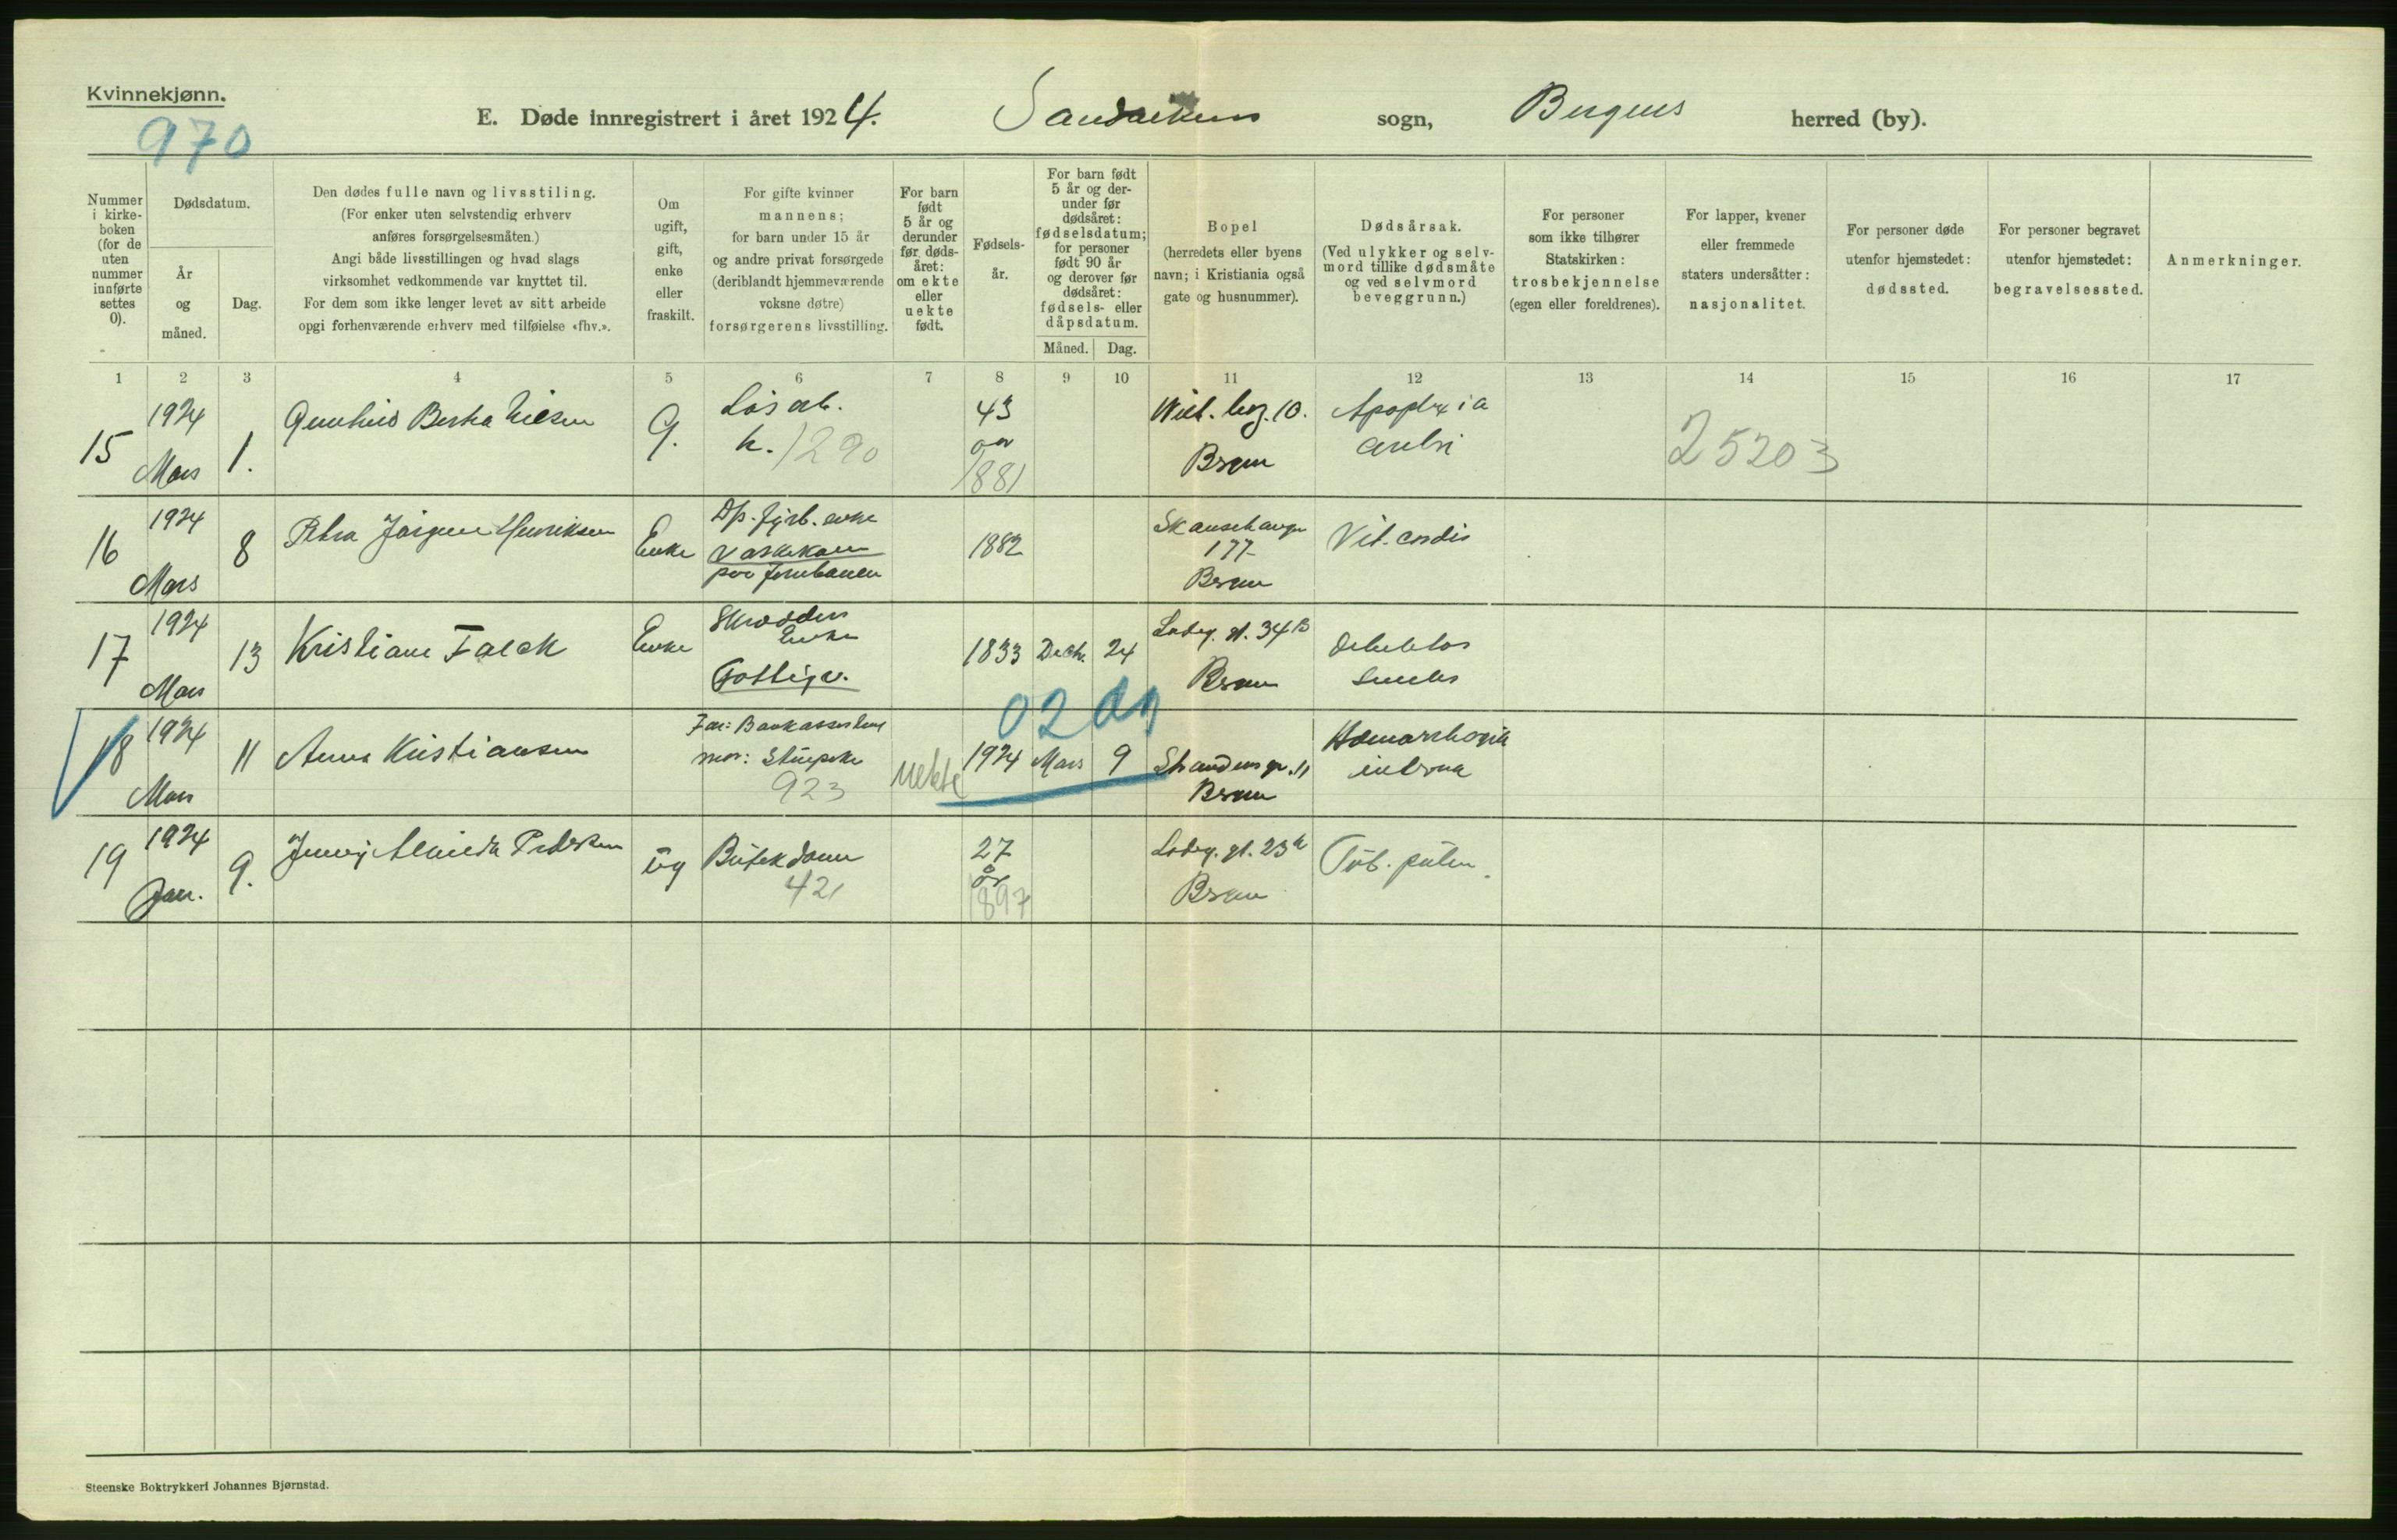 Kvinnekjønn.
970
E. Døde innregistrert i året 1924. Sandvikens sogn, Bergens herred (by).
Nummer i kirke-boken (for de uten nummer innførte settes 0).
Dødsdatum.
År og måned.
Dag.
Den dødes fulle navn og livsstiling.
(For enker uten selvstendig erhverv
anføres forsørgelsesmåten.)
Angi både livsstillingen og hvad slags
virksomhet vedkommende var knyttet til.
For dem som ikke lenger levet av sitt arbeide
opgi forhenværende erhverv med tilføielse «fhv.».
Om
ugift,
gift,
enke
eller
fraskilt.
For gifte kvinner
mannens;
for barn under 15 år
og andre privat forsørgede
(deriblandt hjemmeværende
voksne døtre)
forsørgerens livsstilling.
For barn
født
5 år og
derunder
før døds-
året:
om ekte
eller
uekte
født.
Fødsels-
år.
For barn født
5 år og der-
under før
dødsåret:
fødselsdatum;
for personer
født 90 år
og derover før
dødsåret:
fødsels- eller
dåpsdatum.
Måned. Dag.
Bopel
(herredets eller byens
navn; i Kristiania også
gate og husnummer).
Dødsårsak.
(Ved ulykker og selv-
mord tillike dødsmåte
og ved selvmord
beveggrunn.)
For personer
som ikke tilhører
Statskirken:
trosbekjennelse
(egen eller foreldrenes).
For lapper, kvener
eller fremmede
staters undersåtter:
nasjonalitet.
For personer døde
utenfor hjemstedet:
dødssted.
For personer begravet
utenfor hjemstedet:
begravelsessted.
Anmerkninger.
1 2 3 4 5 6 7 8 9 10 11 12 13 14 15 16 17
15 1924 Mars 1. Gunhild Bertha Nilsen G. Løsarb. h. 1290 43 aar 1881 10. Brgen Apoplexia cerebri 25203
16 1924 Mars 8 Petra Jørgine Henriksen Enke Dp. fyrb. enke Vaskekone paa Jernbanen 1882 177 Brgen Vit. cordis
17 1924 Mars 13 Kristiane Falck Enke Skrædder Enke Fattigv. 1833 Decbr. 24 Ladeg. gt. 34 B Brgen debilitas senilis
0200
18 1924 Mars 11 Anna Kristiansen Far: mor: 923 uekte 1924 Mars 9 11 Brgen Hæmorrhagia interna
19 1924 Jan. 9. Jenny Pedersen ug Butikdame 421 27 år 1897 Ladeg. gt. 23 a Brgen Tub. pulm.
Steenske Boktrykkeri Johannes Bjørnstad.